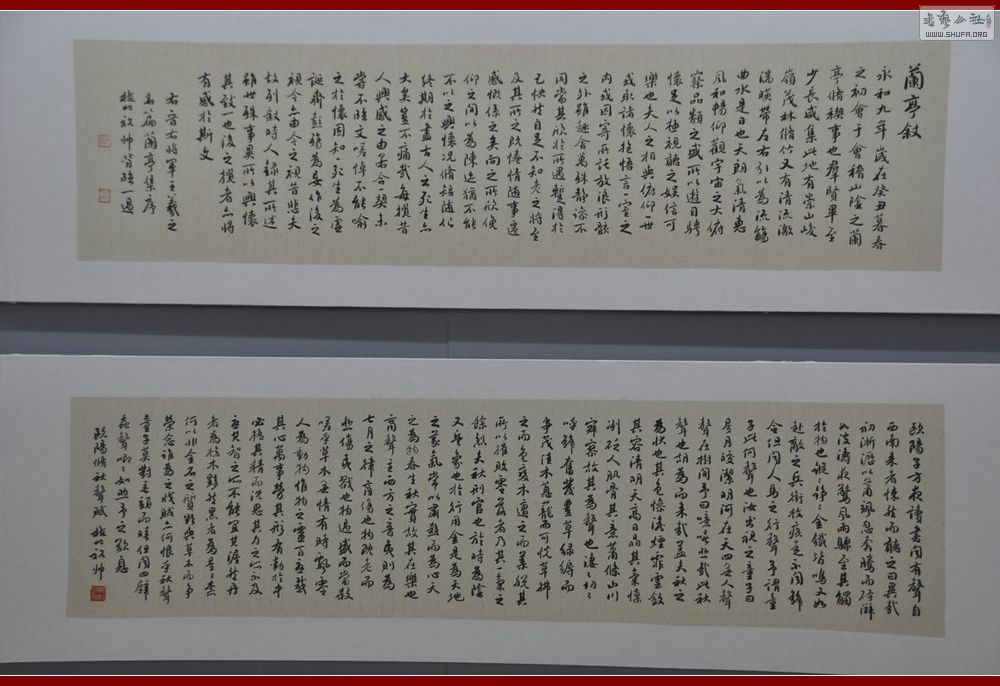 書藝公社
WWW.SHUFA.ORG
蘭亭敘
永和九年歲在癸丑暮春
之初會于會稽山陰之蘭
亭脩稧事也群賢畢至
少長咸集此地有崇山峻
嶺茂林脩竹又有清流激
湍暎帶左右引以為流觴
曲水是日也天朗氣清惠
風和暢仰觀宇宙之大俯
察品類之盛所以遊目騁
懷足以極視聽之娛信可
樂也夫人之相與俯仰一世
或取諸懷抱悟言一室之
內或因寄所託放浪形骸
之外雖趣舍萬殊靜躁不
同當其欣於所遇暫得於
己怏然自足不知老之將至
及其所之既惓情隨事遷
感慨係之矣向之所欣俛
仰之間以為陳迹猶不能
不以之興懷況脩短隨化
終期於盡古人云死生亦
大矣豈不痛哉每攬昔
人興感之由若合一契未
嘗不臨文嗟悼不能喻
之於懷固知一死生為虛
誕齊彭殤為妄作後之
視今亦由今之視昔悲夫
故列敘時人錄其所述
雖世殊事異所以興懷
其致一也後之攬者亦將
有感於斯文
右晉右將軍王羲之
名篇蘭亭集序
背臨一過
歐陽子方夜讀書聞有聲自
西南來者悚然而聽之曰異哉
初淅瀝以蕭颯忽奔騰而砰湃
如波濤夜驚風雨驟至其觸
於物也鏦鏦錚錚金鐵皆鳴又如
赴敵之兵銜枚疾走不聞號
令但聞人馬之行聲予謂童
子此何聲也汝出視之童子曰
星月皎潔明河在天四無人聲
聲在樹間予曰噫嘻悲哉此秋
聲也胡為而來哉蓋夫秋之
為狀也其色慘淡煙霏雲斂
其容清明天高日晶其氣慄
冽砭人肌骨其意蕭條山川
寂寥故其為聲也淒淒切切
呼號奮發豐草綠縟而
爭茂佳木蔥蘢而可悅草拂
之而色變木遭之而葉脫其
所以摧敗零落者乃其一氣之
餘烈夫秋刑官也於時為陰
又兵象也於行用金是為天地
之義氣常以肅殺而為心天
之為物春生秋實故其在樂也
商聲主西方之音夷則為
七月之律商傷也物既老而
悲傷夷戮也物過盛而當殺
嗟乎草木無情有時飄零
人為動物惟物之靈百憂感
其心萬事勞其形有動於中
必搖其精而況思其力之所不及
憂其智之所不能宜其渥然丹
者為槁木黟然黑者為星星奈
何以非金石之質欲與草木而爭
榮念誰為之戕賊亦何恨乎秋聲
童子莫對垂頭而睡但聞四壁
蟲聲唧唧如助予之歎息
歐陽脩秋聲賦